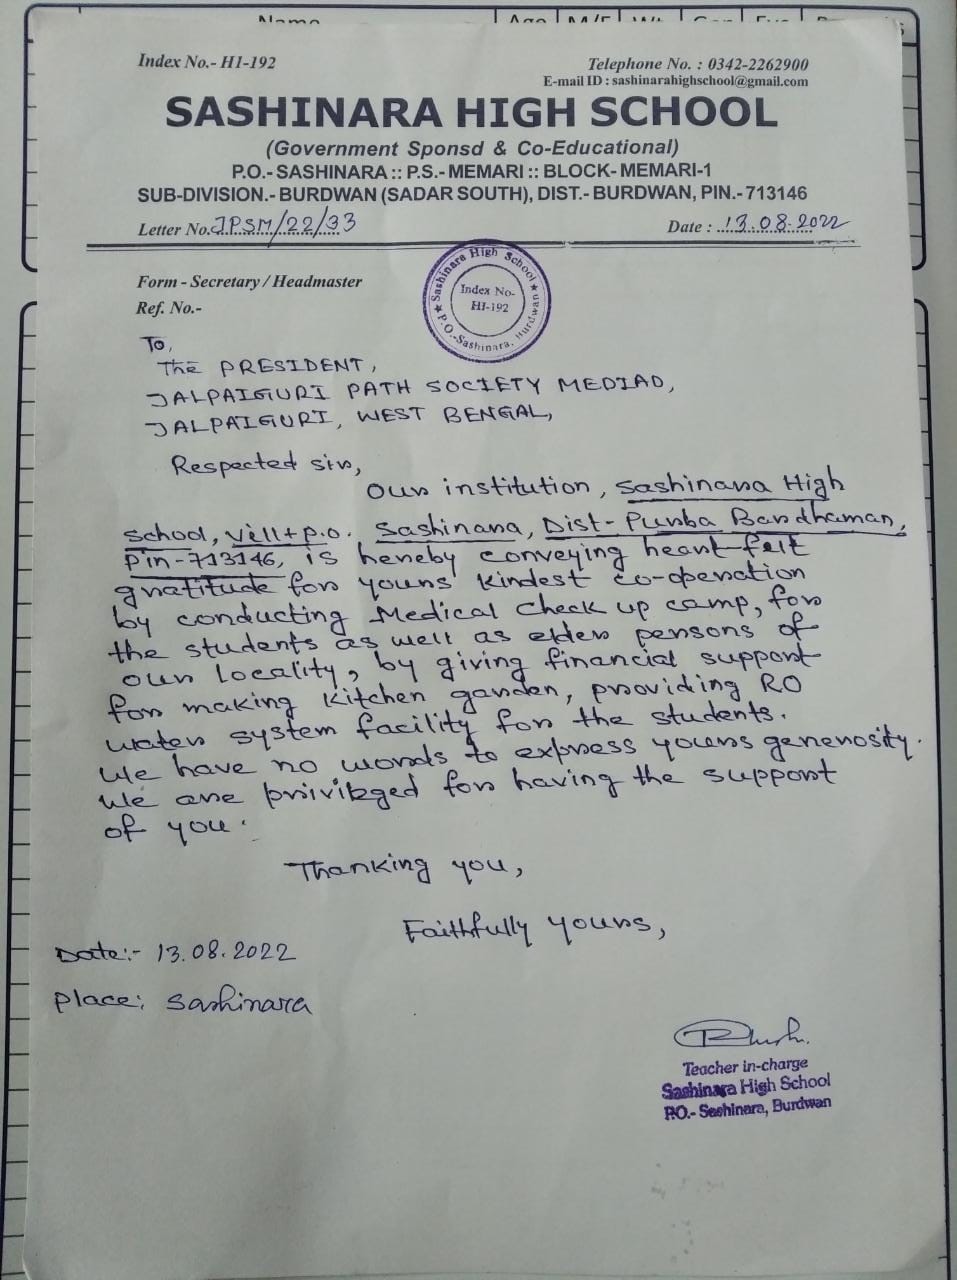 Name Age M/F Wt.
Index No.- HI-192
Telephone No. : 0342-2262900
E-mail ID : sashinarahighschool@gmail.com
SASHINARA HIGH SCHOOL
(Government Sponsd & Co-Educational)
P.O.- SASHINARA :: P.S.- MEMARI :: BLOCK- MEMARI-1
SUB-DIVISION.- BURDWAN (SADAR SOUTH), DIST.- BURDWAN, PIN.- 713146
Letter No. JPSM/22/33
Date : 13.08.2022
Form - Secretary / Headmaster
Ref. No.-
★ Sashinara High School ★
P.O.-Sashinara, Burdwan
Index No-
HI-192
To,
The PRESIDENT,
JALPAIGURI PATH SOCIETY MEDIAD,
JALPAIGURI, WEST BENGAL,
Respected sir,
Our institution, Sashinara High
School, Vill+P.O. Sashinara, Dist- Purba Bardhaman,
Pin-713146, is hereby conveying heart-felt
gratitude for yours' kindest co-operation
by conducting Medical Check up camp, for
the students as well as elder persons of
our locality, by giving financial support
for making kitchen garden, providing RO
water system facility for the students.
We have no words to express yours generosity.
We are privileged for having the support
of you.
Thanking you,
Faithfully yours,
Date:- 13.08.2022
Place: Sashinara
Teacher in-charge
Sashinara High School
P.O.- Sashinara, Burdwan